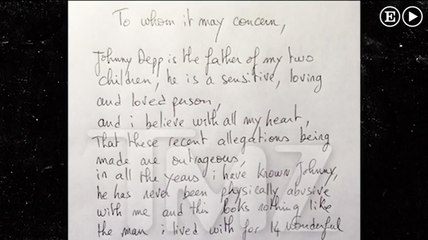 To whom it may concern,
Johnny Depp is the father of my two
children, he is a sensitive, loving
and loved person,
and i believe with all my heart,
that these recent allegations being
made are outrageous,
in all the years i have known Johnny,
he has never been physically abusive
with me and this looks nothing like
the man i lived with for 14 wonderful
TMZ
E